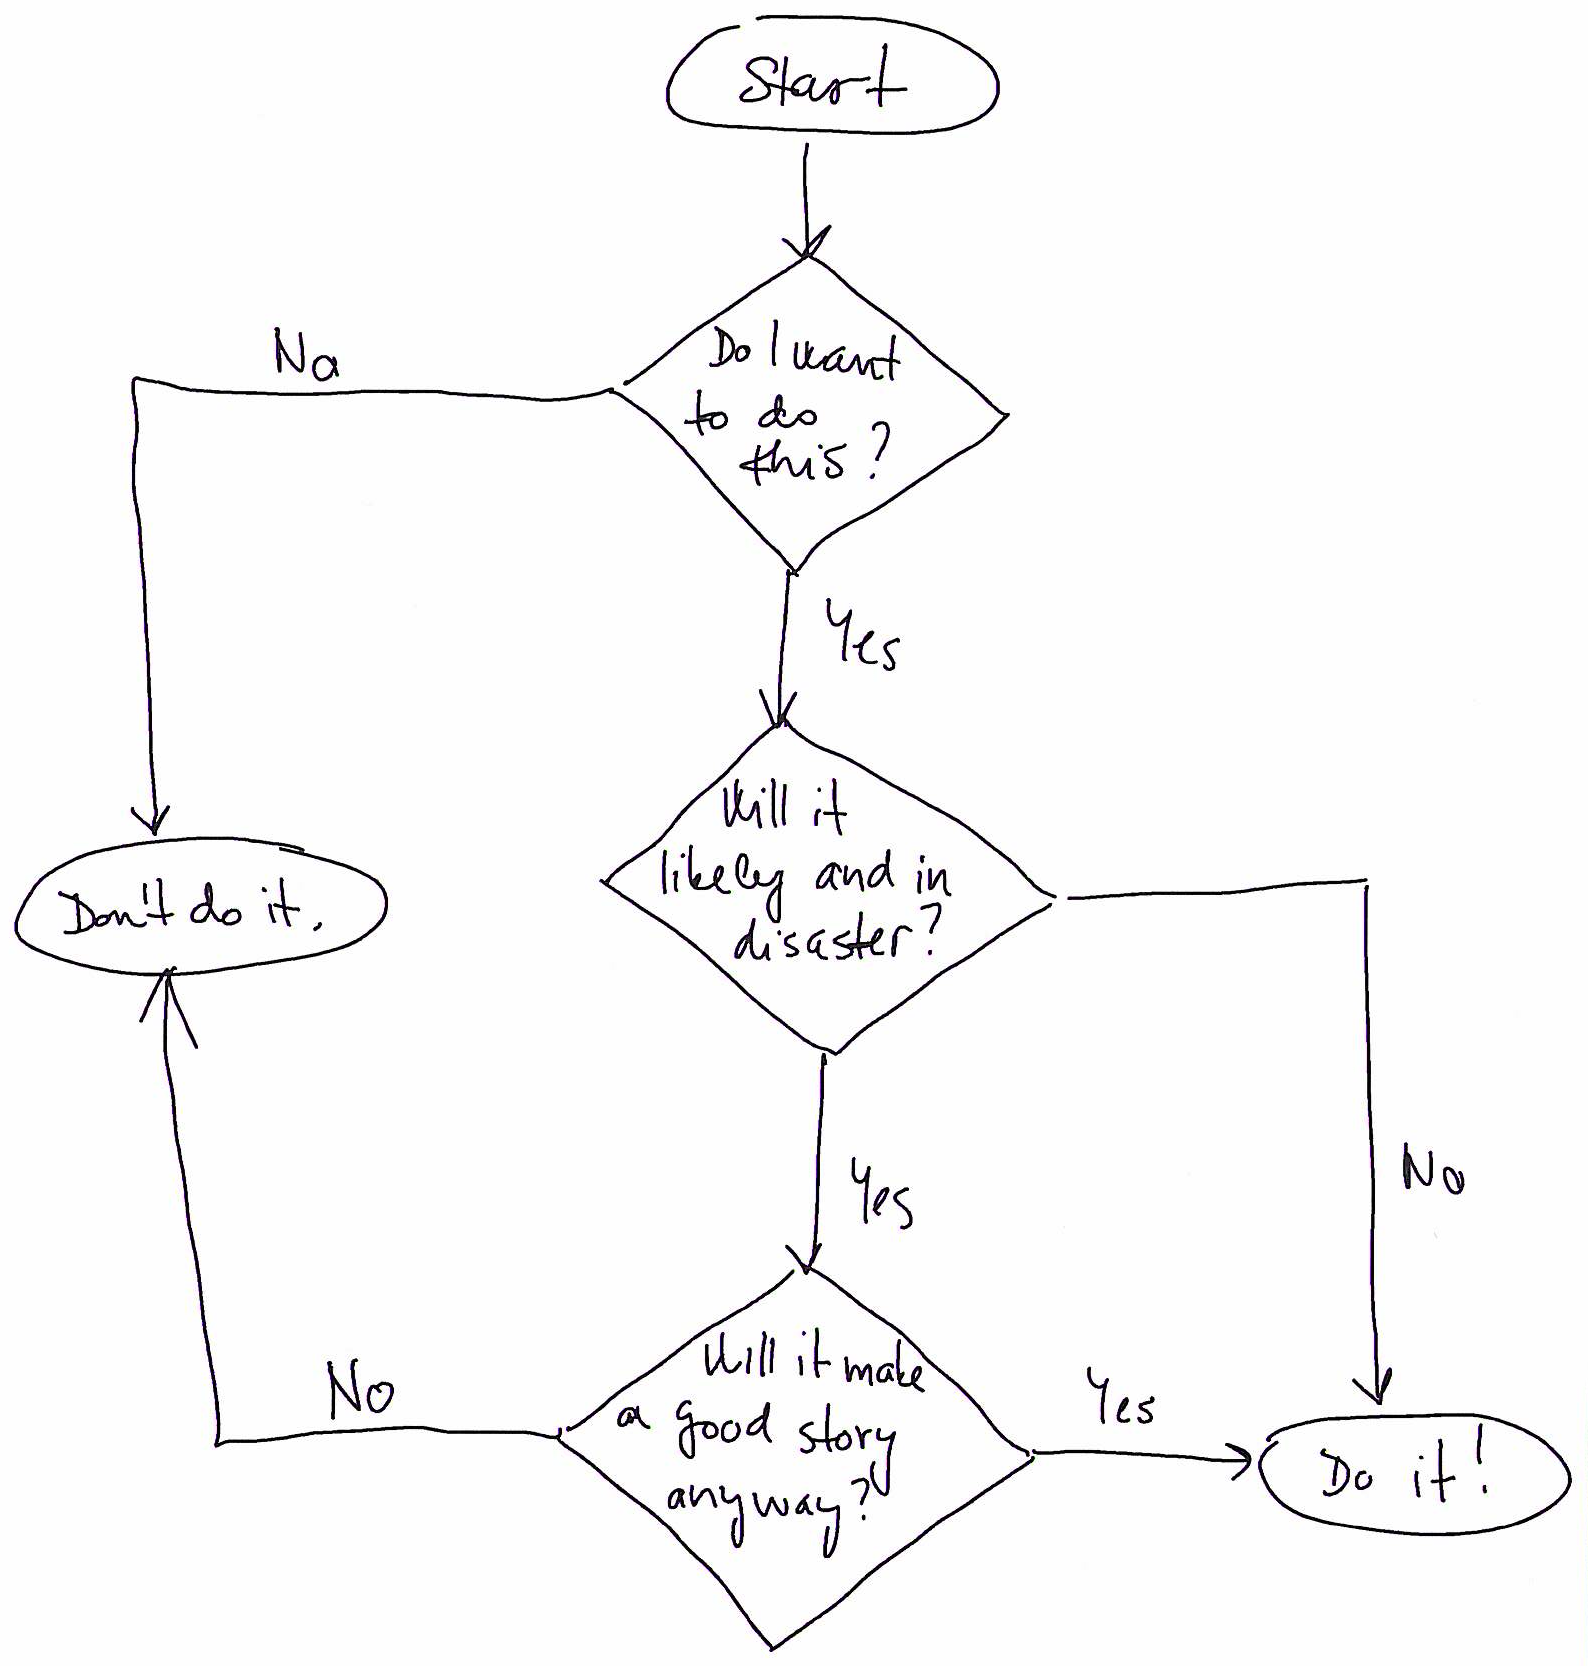 Start
Do I want
to do
this?
No
Yes
Will it
likely end in
disaster?
Don't do it.
No
Yes
Will it make
a good story
anyway?
No
Yes
Do it!